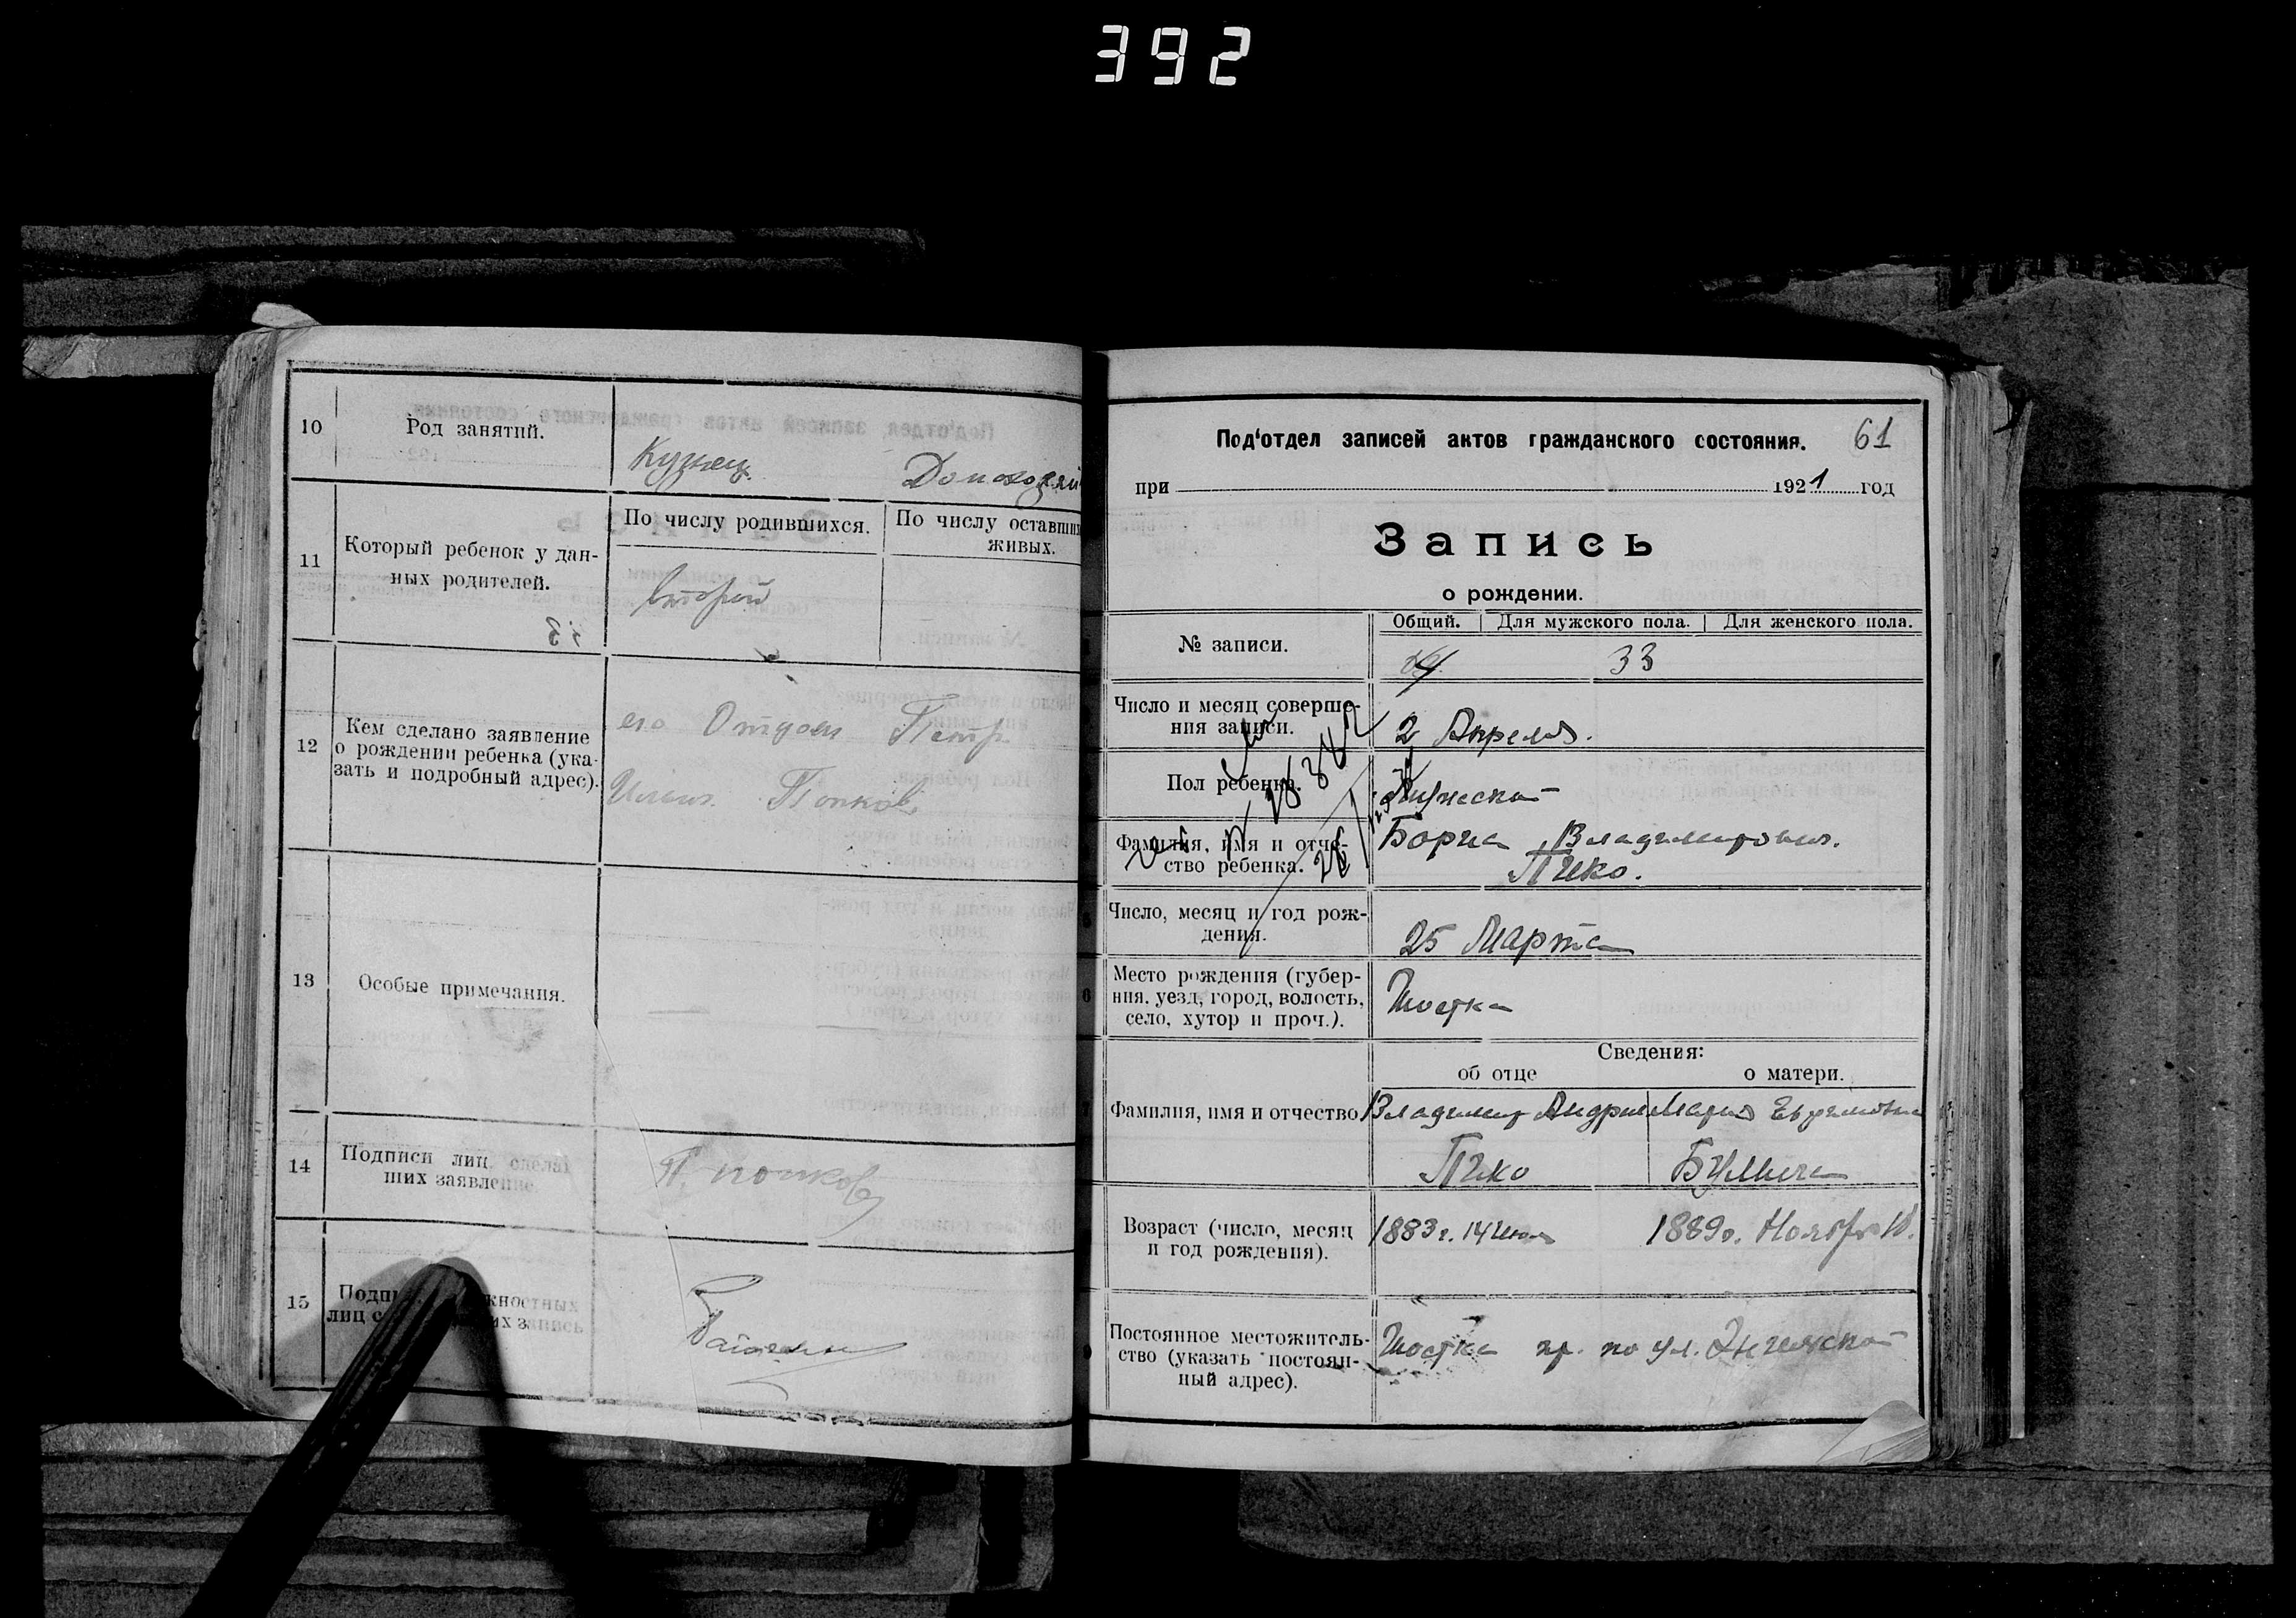 392
10
Род занятий.
Кузнец.
Домохозяй
11
Который ребенок у дан-
ных родителей.
По числу родившихся.
По числу оставших
живых.
второй
12
Кем сделано заявление
о рождении ребенка (ука-
зать и подробный адрес).
его Отцом Петр.
Ильич. Попков.
13
Особые примечания.
14
Подписи лиц, сделав
ших заявление.
П. Попков
15
61
Под'отдел записей актов гражданского состояния.
при 1921 год
Запись
о рождении.
№ записи.
Общий. Для мужского пола. Для женского пола.
33
Число и месяц соверше-
ния записи.
2 Апреля.
Пол ребенка.
Мужеской
Фамилия, имя и отче-
ство ребенка.
Бориса Владимирович.
Пико.
Число, месяц и год рож-
дения.
25 Марта
Место рождения (губер-
ния, уезд, город, волость,
село, хутор и проч.).
Шостка
Сведения:
об отце
о матери.
Фамилия, имя и отчество
Владимир Андрие
Мария Ефремовна
Пико
Возраст (число, месяц
и год рождения).
1883 г. 14 Июля
1889 г. Ноября
Постоянное местожитель-
ство (указать постоян-
ный адрес).
Шостка пр. по ул.